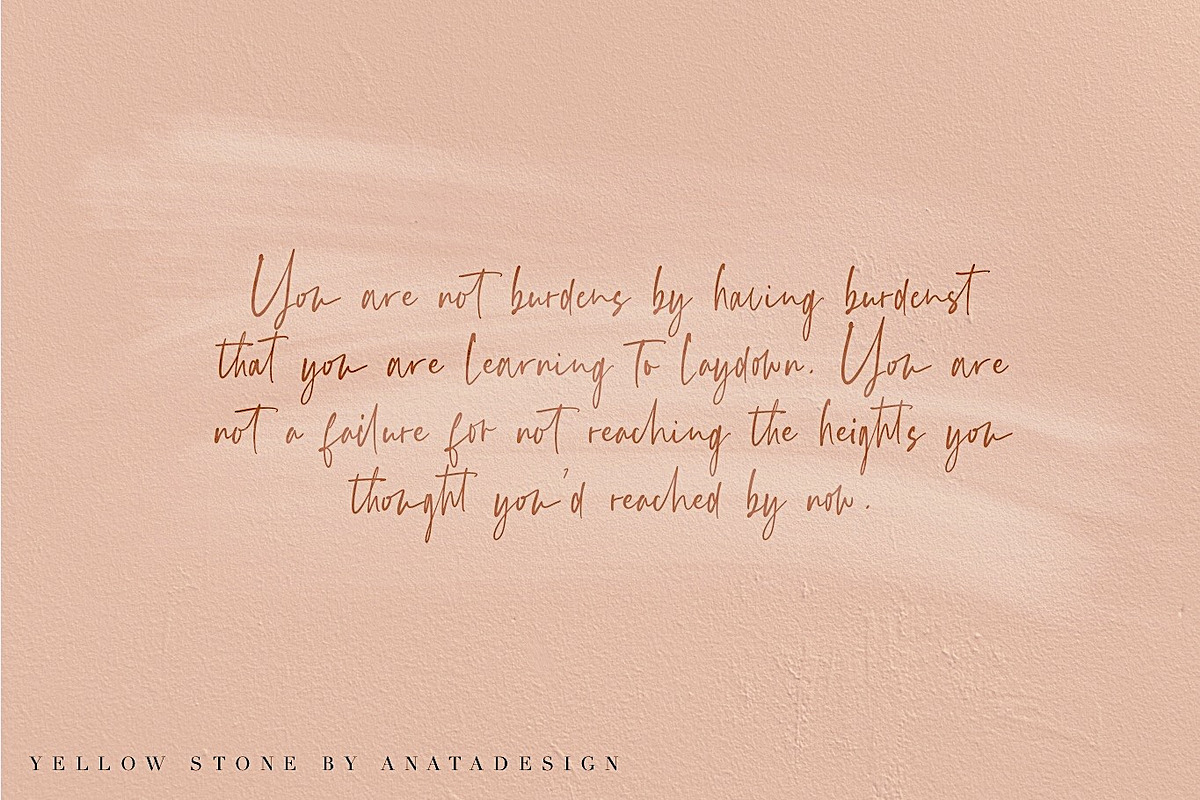 You are not burdens by having burdenst
that you are learning to laydown. You are
not a failure for not reaching the heights you
thought you'd reached by now.
YELLOW STONE BY ANATADESIGN